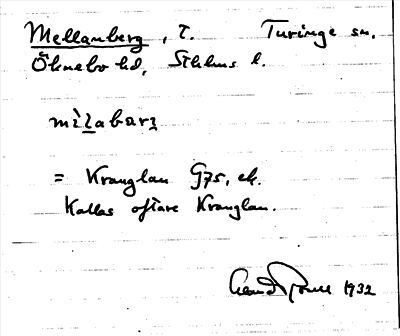 Mellanberg, T. Turinge sn.
Öknebo hd, Sthlms l.
mìlabarʒ
= Kranglan G75, ek.
Kallas oftare Kranglan.
1932